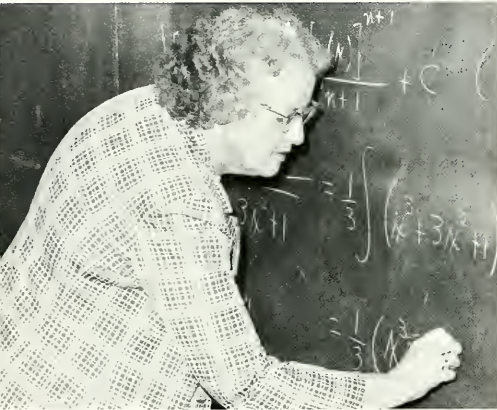 (x)]^{n+1} / n+1 + C (
3x²+1 = 1/3 ∫ (x³+3x²+1)
= 1/3 (x³